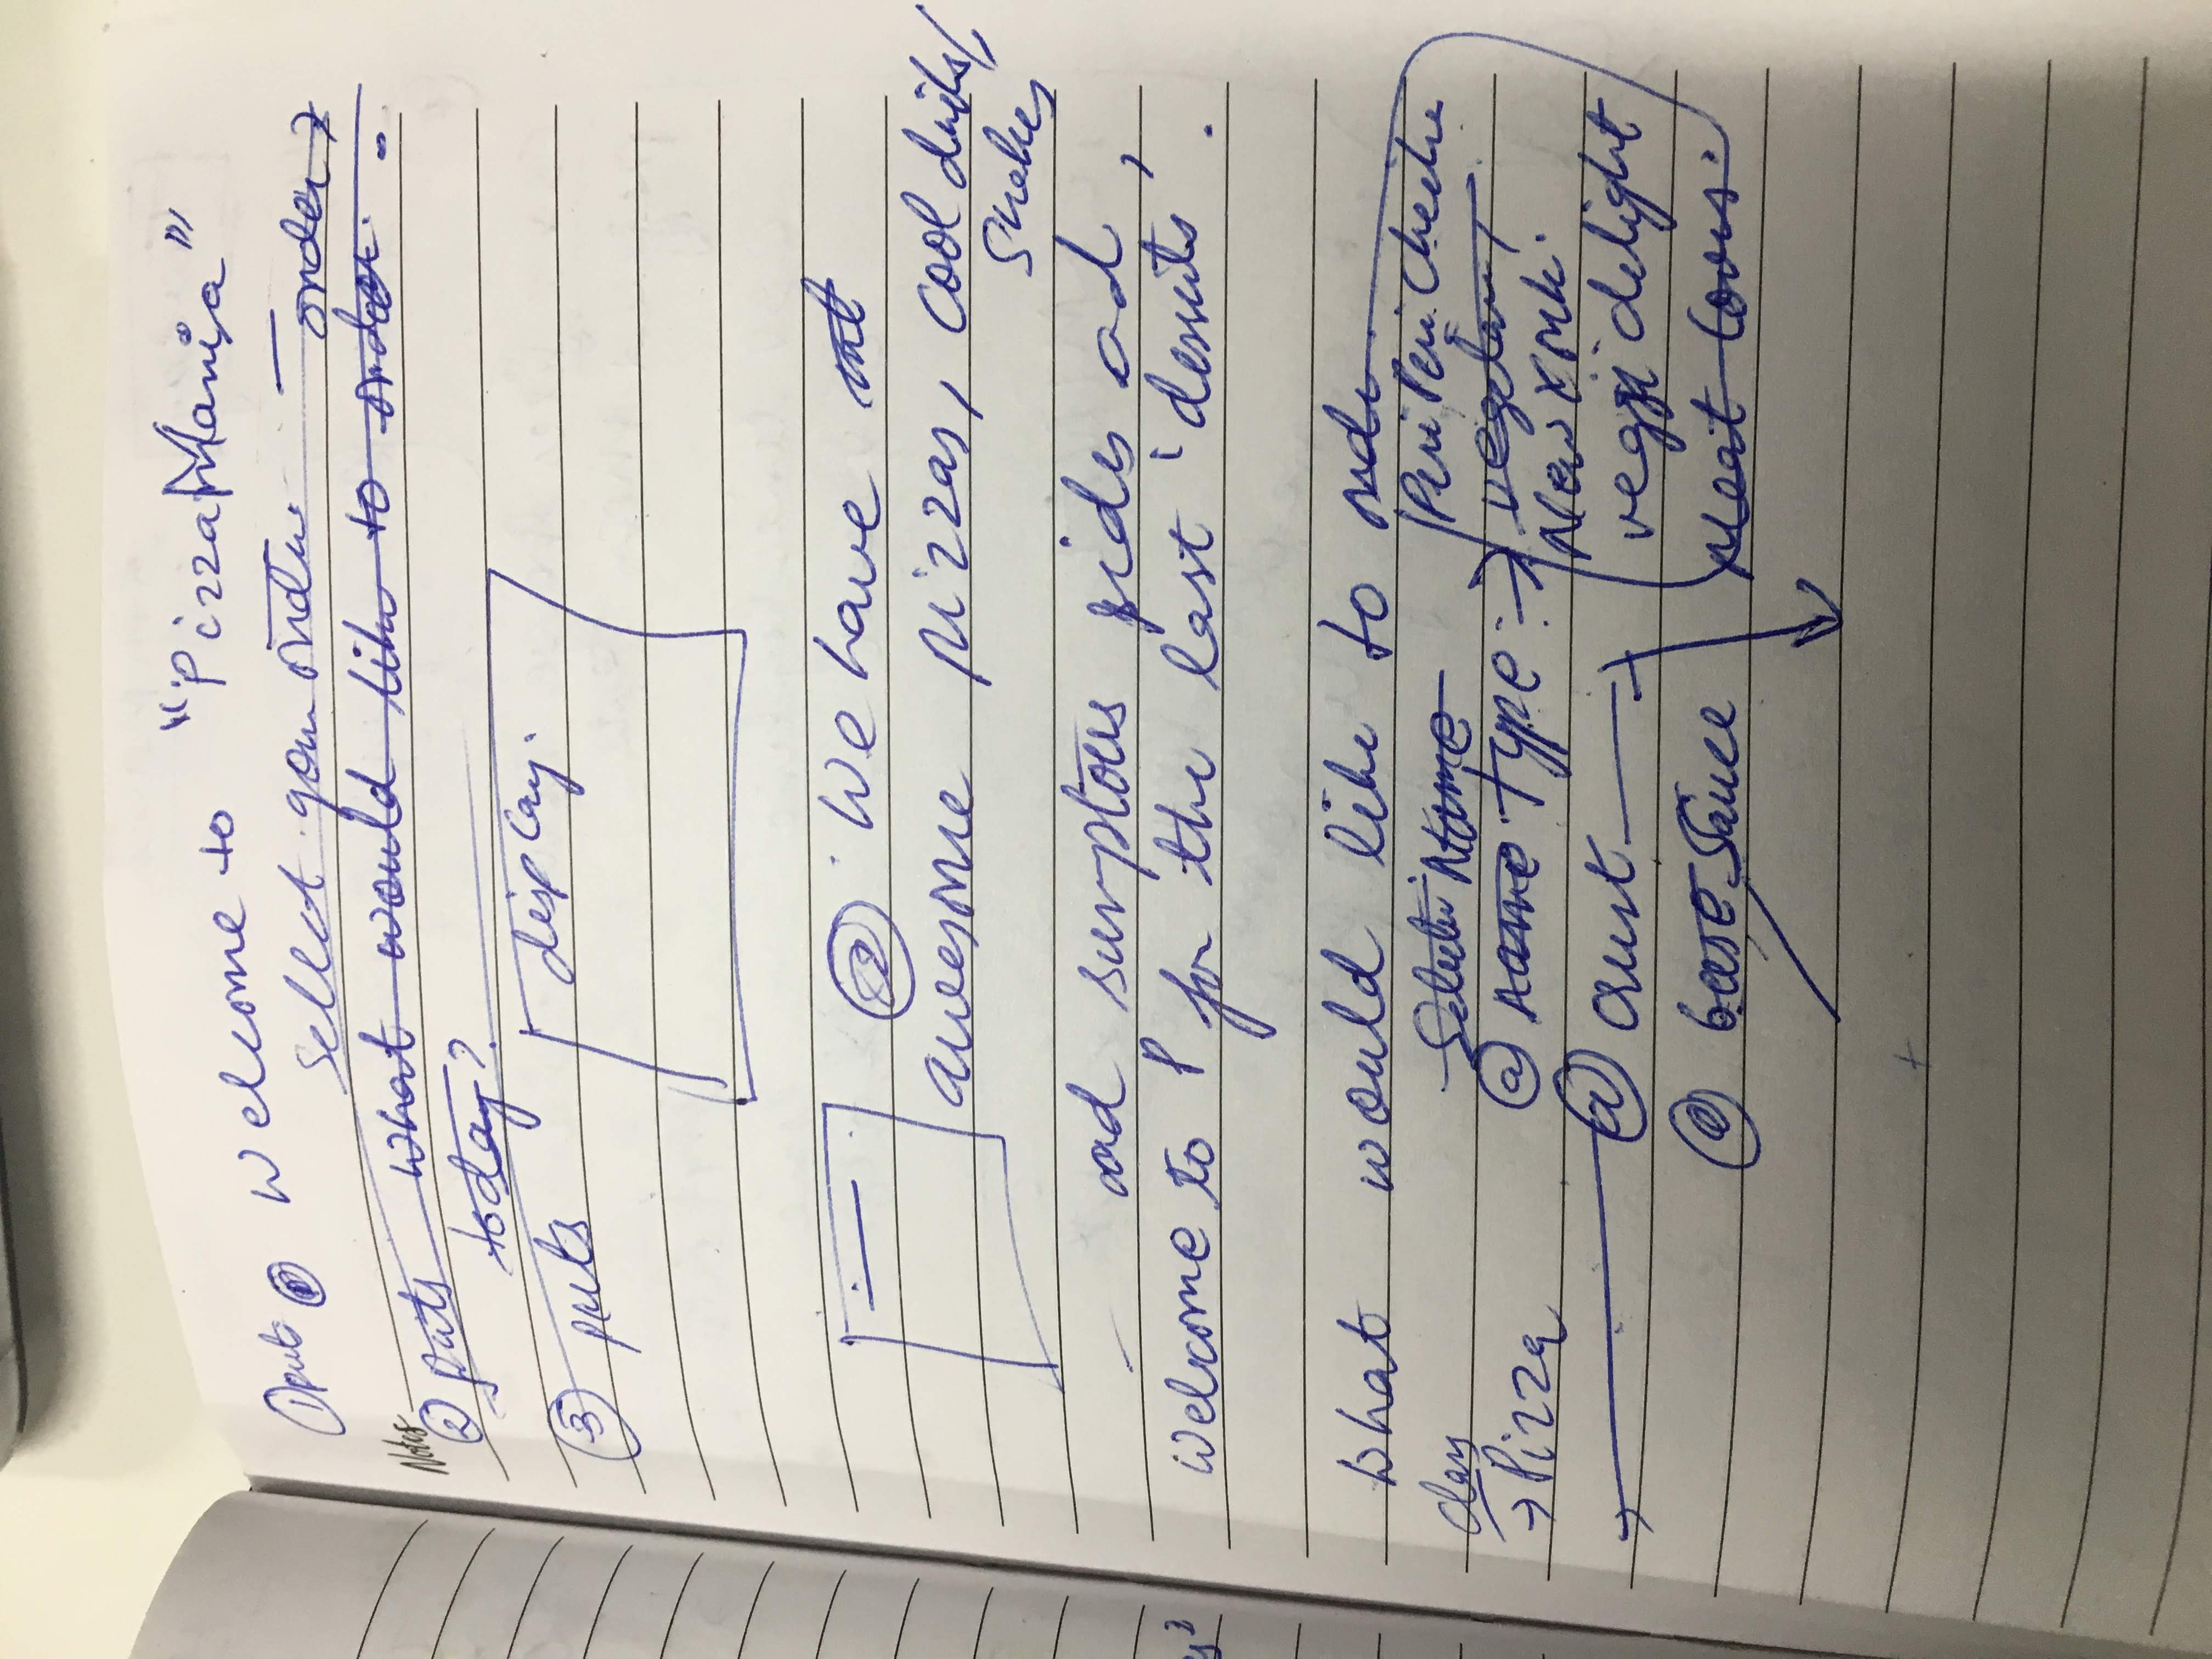 ① put Welcome to "PizzaMania"
Select your order order ?
Notes
② puts what would like to order
today?
③ puts display.
② We have
awesome pizzas, cool drinks/,
Shakes
and sumptous sides ad,
Welcome to P for the last 'desserts'.
What would like to order
class Name Peri Peri Checke
→ Pizza @ name type :→
New York.
veggi delight
→ @ crust
@ base Sauce Meat lovers.